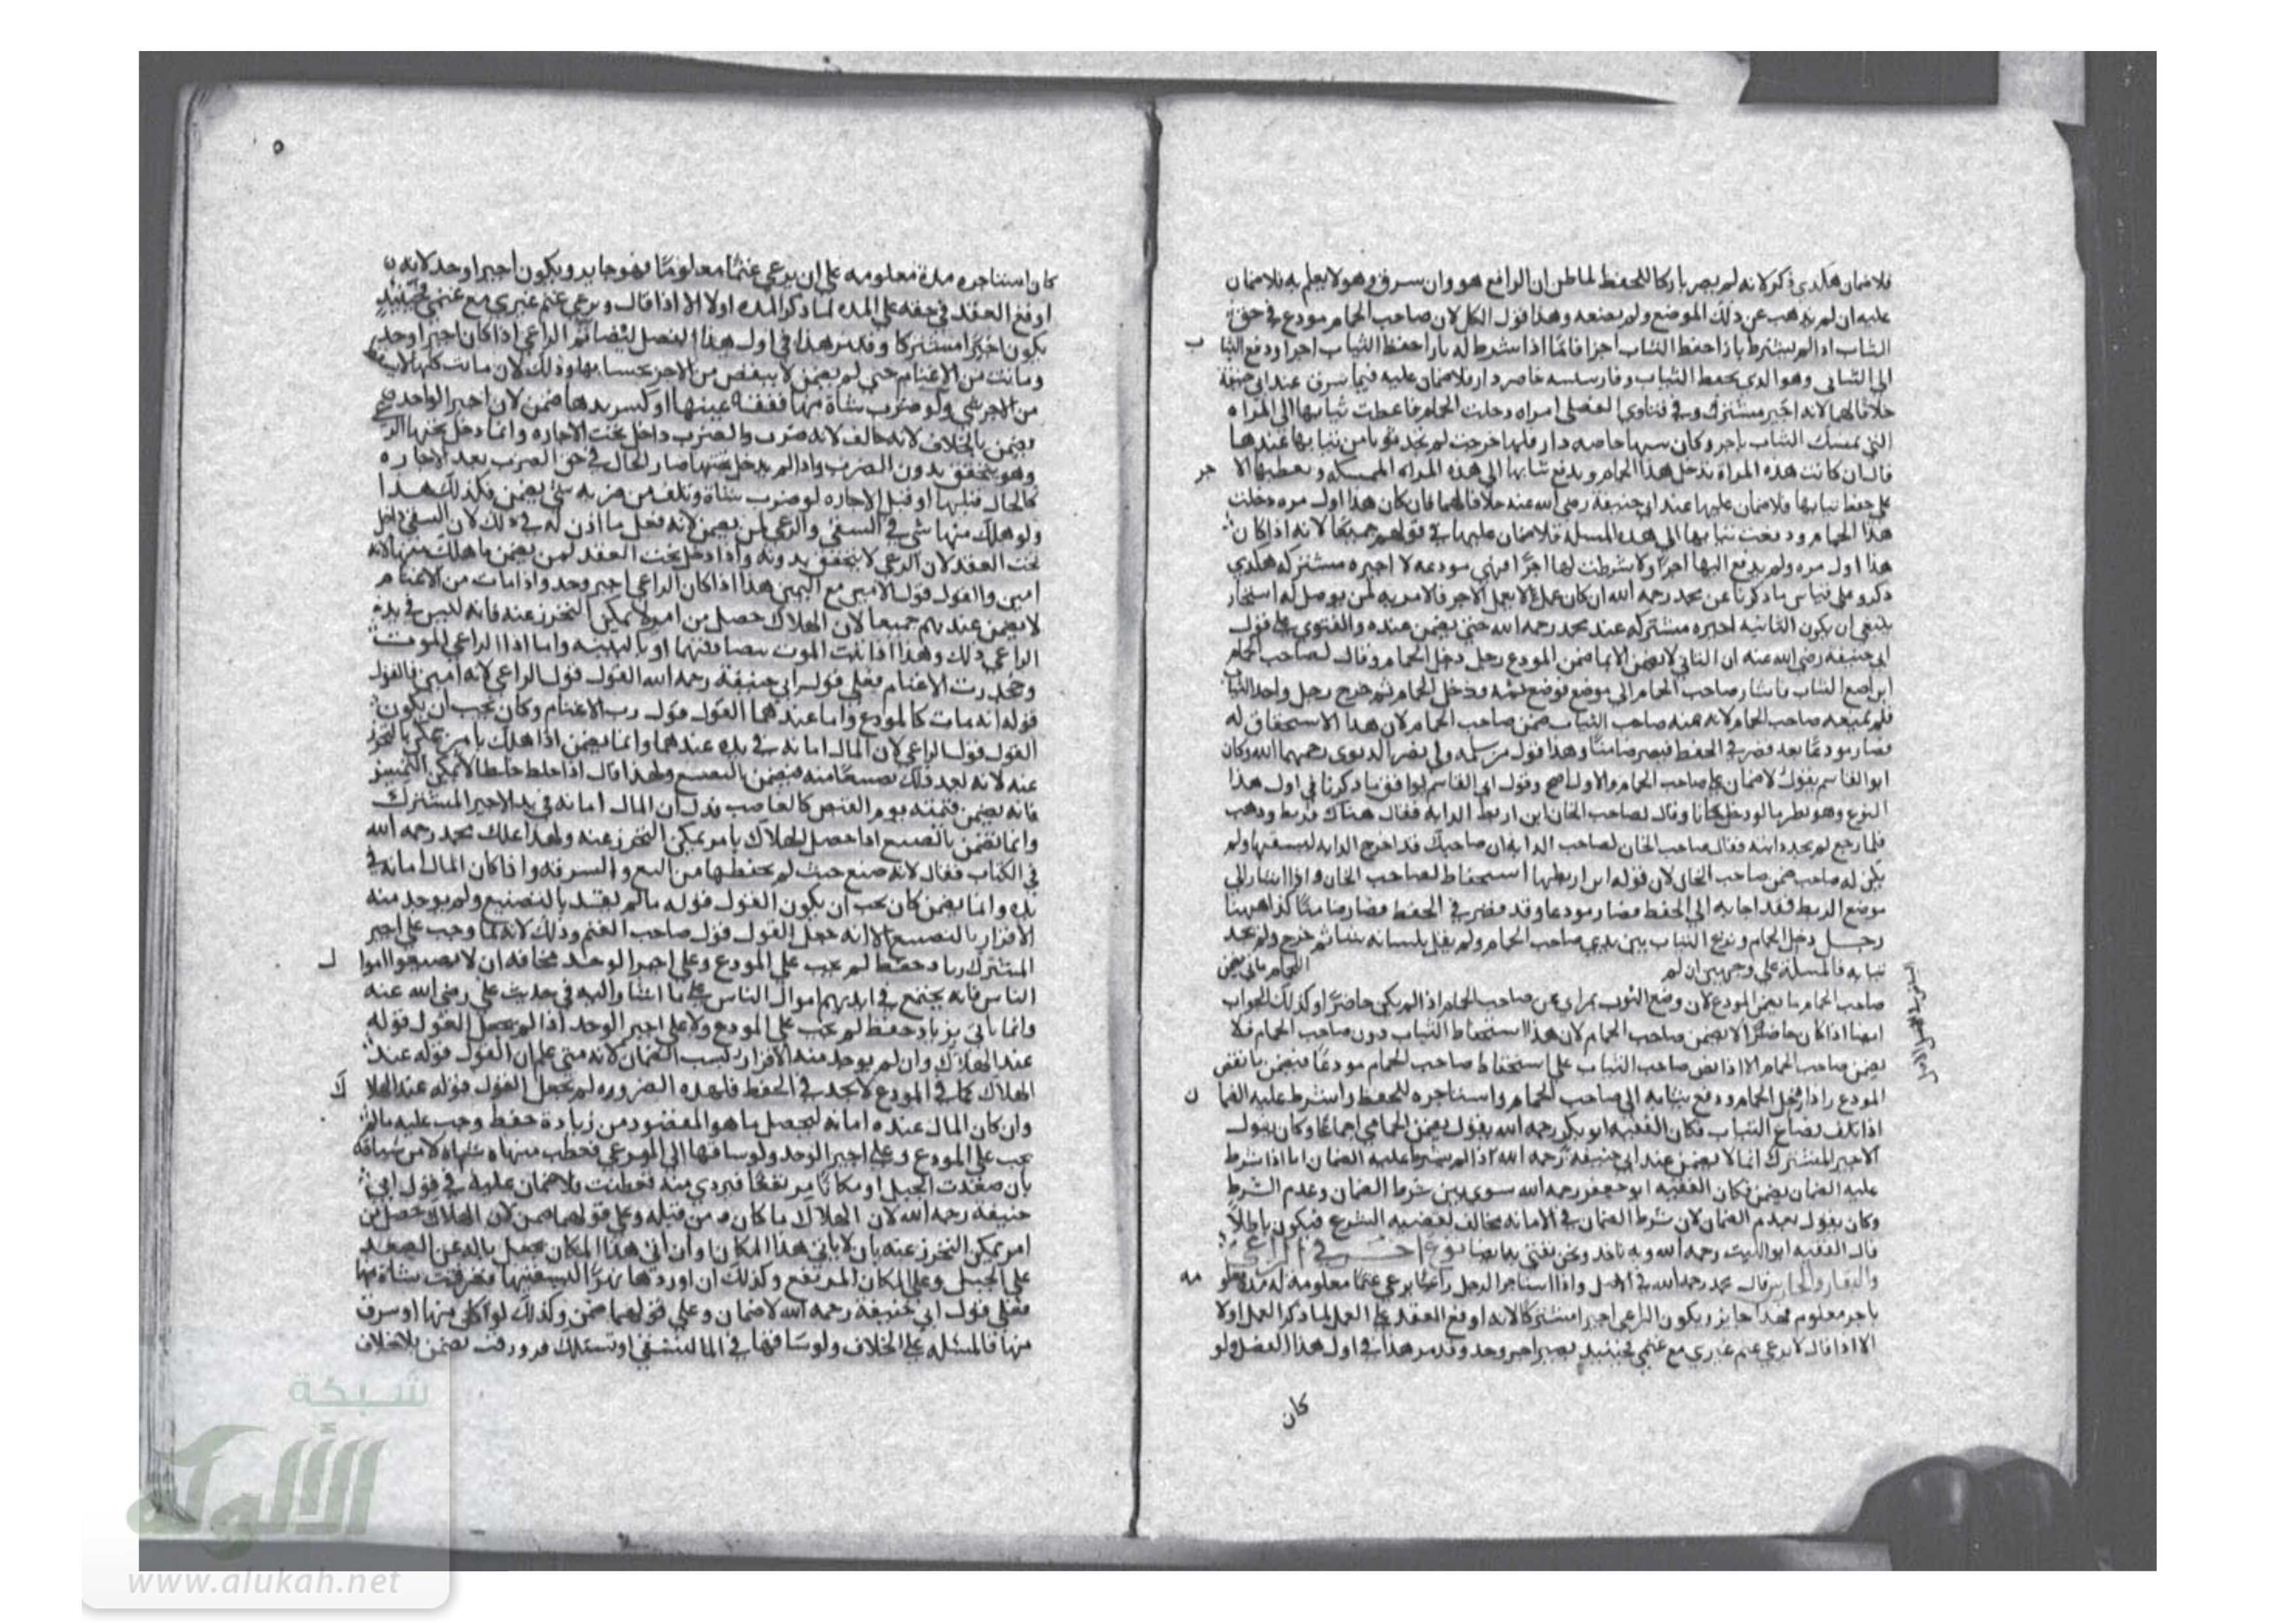 فلا ضمان هكذي ذكر لانه لم يصر تاركا للحفظ لما ظن ان الرافع هو وان سرق وهو لا يعلم به فلا ضمان
عليه ان لم يذهب عن ذلك الموضع ولم يضعه وهذا قول الكل لان صاحب الحمام مودع في حق
الثياب اذا لم يشترط بازا حفظ الثياب اجرا فاما اذا شرط له بازا حفظ الثياب اجرا ودفع الثيا
ب
الى الثيابي وهو الذي يحفظ الثياب فلا ضمان عليه فيما سرق عند ابي حنيفة
خلافا لهما لانه اجير مشترك وفي فتاوى الفضلي امراه دخلت الحمام فاعطت ثيابها الى المراه
التي تمسك الثياب باجر فلما خرجت لم تجد ثوبا من ثيابها عندها
قال ان كانت هذه المراة تدخل هذا الحمام وتدفع ثيابها الى هذه المراه الممسكه وتعطيها الا
جر
على حفظ ثيابها فلا ضمان عليها عند ابي حنيفة رضي الله عنه خلافا لهما فان كان هذا اول مره دخلت
هذا الحمام ودفعت ثيابها الى هذه فلا ضمان عليها في قولهم جميعا لانه اذا كان
هذا اول مره ولم يدفع اليها اجرا ولا شرطت لها اجرا فهي مودعه لا اجيره مشتركه هكذي
ذكر وعلى قياس ما ذكرنا عن محمد رحمه الله
ينبغي ان يكون الثانيه اجيره مشتركه عند محمد رحمه الله حتى يضمن عنده والفتوى على قول
ابي حنيفه رضي الله عنه ان الثيابي لا يضمن الا بما ضمن المودع رجل دخل الحمام وقال لصاحب الحمام
اين اضع الثياب فاشار صاحب الحمام الى موضع فوضع ثمه ودخل الحمام ثم خرج رجل واخذ الثيا
ب
فلم يمنعه صاحب الحمام لانه ظنه صاحب الثياب ضمن صاحب الحمام لان هذا الاستحفاظ له
فصار مودعا بعد قصر في الحفظ فيصير ضامنا وهذا قول رحمهما الله وكان
ابو القاسم يقول لا ضمان على صاحب الحمام والاول اصح وقول ابي القاسم يوافق ما ذكرنا في اول هذا
النوع وهو نظير ما لو دخل خانا وقال لصاحب الخان اين اربط الدابة فقال هناك فربط وذهب
فلما رجع لم يجد دابته فقال صاحب الخان لصاحب الدابه ان صاحبك قد اخرج الدابه ليسقيها ولم
يكن له صاحب ضمن صاحب الخان لان قوله اين اربطها استحفاظ لصاحب الخان واذا اشار الى
موضع الربط فقد اجابه الى الحفظ فصار مودعا وقد قصر في الحفظ فصار ضامنا كذا ههنا
رجل دخل الحمام ونزع الثياب بين يدي صاحب الحمام ولم يقل بلسانه شيا ثم خرج ولم يجد
ثيابه فالمسلة على وجهين ان لم
صاحب الحمام ما يضمن المودع لان وضع الثوب بمراى عن صاحب الحمام اذا لم يكن حاضرا وكذلك الجواب
ايضا اذا كان حاضرا لا يضمن صاحب الحمام لان هذا استحفاظ الثياب دون صاحب الحمام فلا
يضمن صاحب الحمام الا اذا نص صاحب الثياب على استحفاظ صاحب الحمام مودعا فيضمن ما يضمن
المودع واذا دخل الحمام ودفع ثيابه الى صاحب الحمام واستاجره للحفظ واشترط عليه الضما
ن
اذا تلف بضياع الثياب فكان الفقيه ابو بكر رحمه الله يقول يضمن الحمامي اجماعا وكان يقول
الاجير المشترك انما لا يضمن عند ابي حنيفة رحمه الله اذا لم يشترط عليه الضمان اما اذا شرط
عليه الضمان يضمن وكان الفقيه ابو جعفر رحمه الله سوى بين شرط الضمان وعدم الشرط
وكان يقول بعدم الضمان لان شرط الضمان في الامانه مخالف لقضيه الشرع فيكون باطلا
قال الفقيه ابو الليث رحمه الله وبه ناخذ ونحن نفتي به ايضا نوع اخر في الراعي
والبقار والحارس قال محمد رحمه الله في الاصل واذا استاجر الرجل راعيا يرعى غنما معلومه له
باجر معلوم فهذا جايز ويكون الراعي اجيرا مشتركا لانه اوقع العقد على العمل لما ذكر العمل اولا
الا اذا قال لا يرعى غنم غيري مع غنمي فحينئذ يصير اجير وحد وقد مر هذا في اول هذا الفصل ولو
كان
٥
كان استاجره مدة معلومه على ان يرعى غنما معلوما فهو جايز ويكون اجيرا وحد لانه
اوقع العقد في حقه على المده لما ذكر المده اولا الا اذا قال ويرعى غنم غيري مع غنمي فحينئذ
يكون اجيرا مشتركا وقد مر هذا في اول هذا الفصل ثم الراعي اذا كان اجيرا وحد
وماتت من الاغنام حتى لم يضمن لا ينقص من الاجر بحسابها وذلك لان ما تت كلها لا يسقط
من الاجر شي ولو ضرب شاة منها ففقئه عينها او كسر يدها ضمن لان اجير الواحد
يضمن بالخلاف لانه خالف لانه ضرب والضرب داخل تحت الاجاره وانما دخل تحتها الر
وهو يتحقق بدون الضرب واذا لم يدخل تحتها صار الحال في حق الضرب بعد الاجاره
كالحال قبلها او قبل الاجاره لو ضرب شاة وتلف من ضربه شي يضمن فكذلك هذا
ولو هلك منها شي في السقي والرعي لم يضمن لانه فعل ما اذن له في ذلك لان السقي داخل
تحت العقد لان الرعي لا يتحقق بدونه واذا دخل تحت العقد لم يضمن ما هلك منها لانه
امين والقول قول الامين مع اليمين هذا اذا كان الراعي اجير وحد واذا مات من الاغنام
لا يضمن عندهم جميعا لان الهلاك حصل من امر لا يمكن التحرز عنه فانه ليس في يد
الراعي ذلك وهذا اذا ثبت الموت بتصادقهما او بالبينه واما اذا ادعى الراعي الموت
وجحد رب الاغنام فعلى قول ابي حنيفة رحمه الله القول قول الراعي لانه امين فالقول
قوله انه مات كالمودع واما عندهما القول قول رب الاغنام وكان يجب ان يكون
القول قول الراعي لان المال امانه في يده عندهما وانما يضمن اذا هلك بامر يمكن التحرز
عنه لانه يعد ذلك تضييعا منه فيضمن بالتضييع ولهذا قال اذا خلط خلطا لا يمكن التمييز
فانه يضمن قيمته يوم القبض كالغاصب فدل ان المال امانه في يد الاجير المشترك
وانما يضمن بالتضييع اذا حصل الهلاك بامر يمكن التحرز عنه ولهذا علل محمد رحمه الله
في الكتاب فقال لانه ضيع حيث لم يحفظها من السبع والسرقه واذا كان المال امانه في
يده وانما يضمن كان يجب ان يكون القول قوله ما لم يقر بالتضييع ولم يوجد منه
الاقرار بالتضييع الا انه جعل القول قول صاحب الغنم وذلك لانه لما وجب على اجير
المشترك زياده حفظ لم يجب على المودع وعلى اجير الوحد مخافه ان لا يضيعوا اموا
ل
الناس فانه يجتمع في ايديهم اموال الناس على ما اشار اليه في حديث علي رضي الله عنه
وانما ياتي بزياده حفظ لم يجب على المودع ولا على اجير الوحد اذا لم يجعل القول قوله
عند الهلاك وان لم يوجد منه الاقرار بسبب الضمان لانه متى علم ان القول قوله عند
الهلاك كما في المودع لا يجد في الحفظ فلهذه الضروره لم نجعل القول قوله عند الهلا
ك
وان كان المال عنده امانه ليحصل ما هو المقصود من زيادة حفظ وجب عليه مالم
يجب على المودع وعلى اجير الوحد ولو ساقها الى المرعى فعطب منها شاه لا من سياقه
بان صعدت الجبل او مكانا مرتفعا فتردى منه فعطبت فلا ضمان عليه في قول ابي
حنيفه رحمه الله لان الهلاك ما كان من قبله وعلى قولهما ضمن لان الهلاك حصل من
امر يمكن التحرز عنه بان لا ياتي هذا المكان وان اتى هذا المكان
على الجبل وعلى المكان المرتفع وكذلك ان اوردها نهرا ليسقيها فغرقت شاة منها
فعلى قول ابي حنيفة رحمه الله لا ضمان وعلى قولهما ضمن وكذلك لو اكل منها او سرق
منها فالمسئله على الخلاف ولو ساقها في الما لتسقي يضمن بلا خلاف
شبكة
الألوكة
www.alukah.net